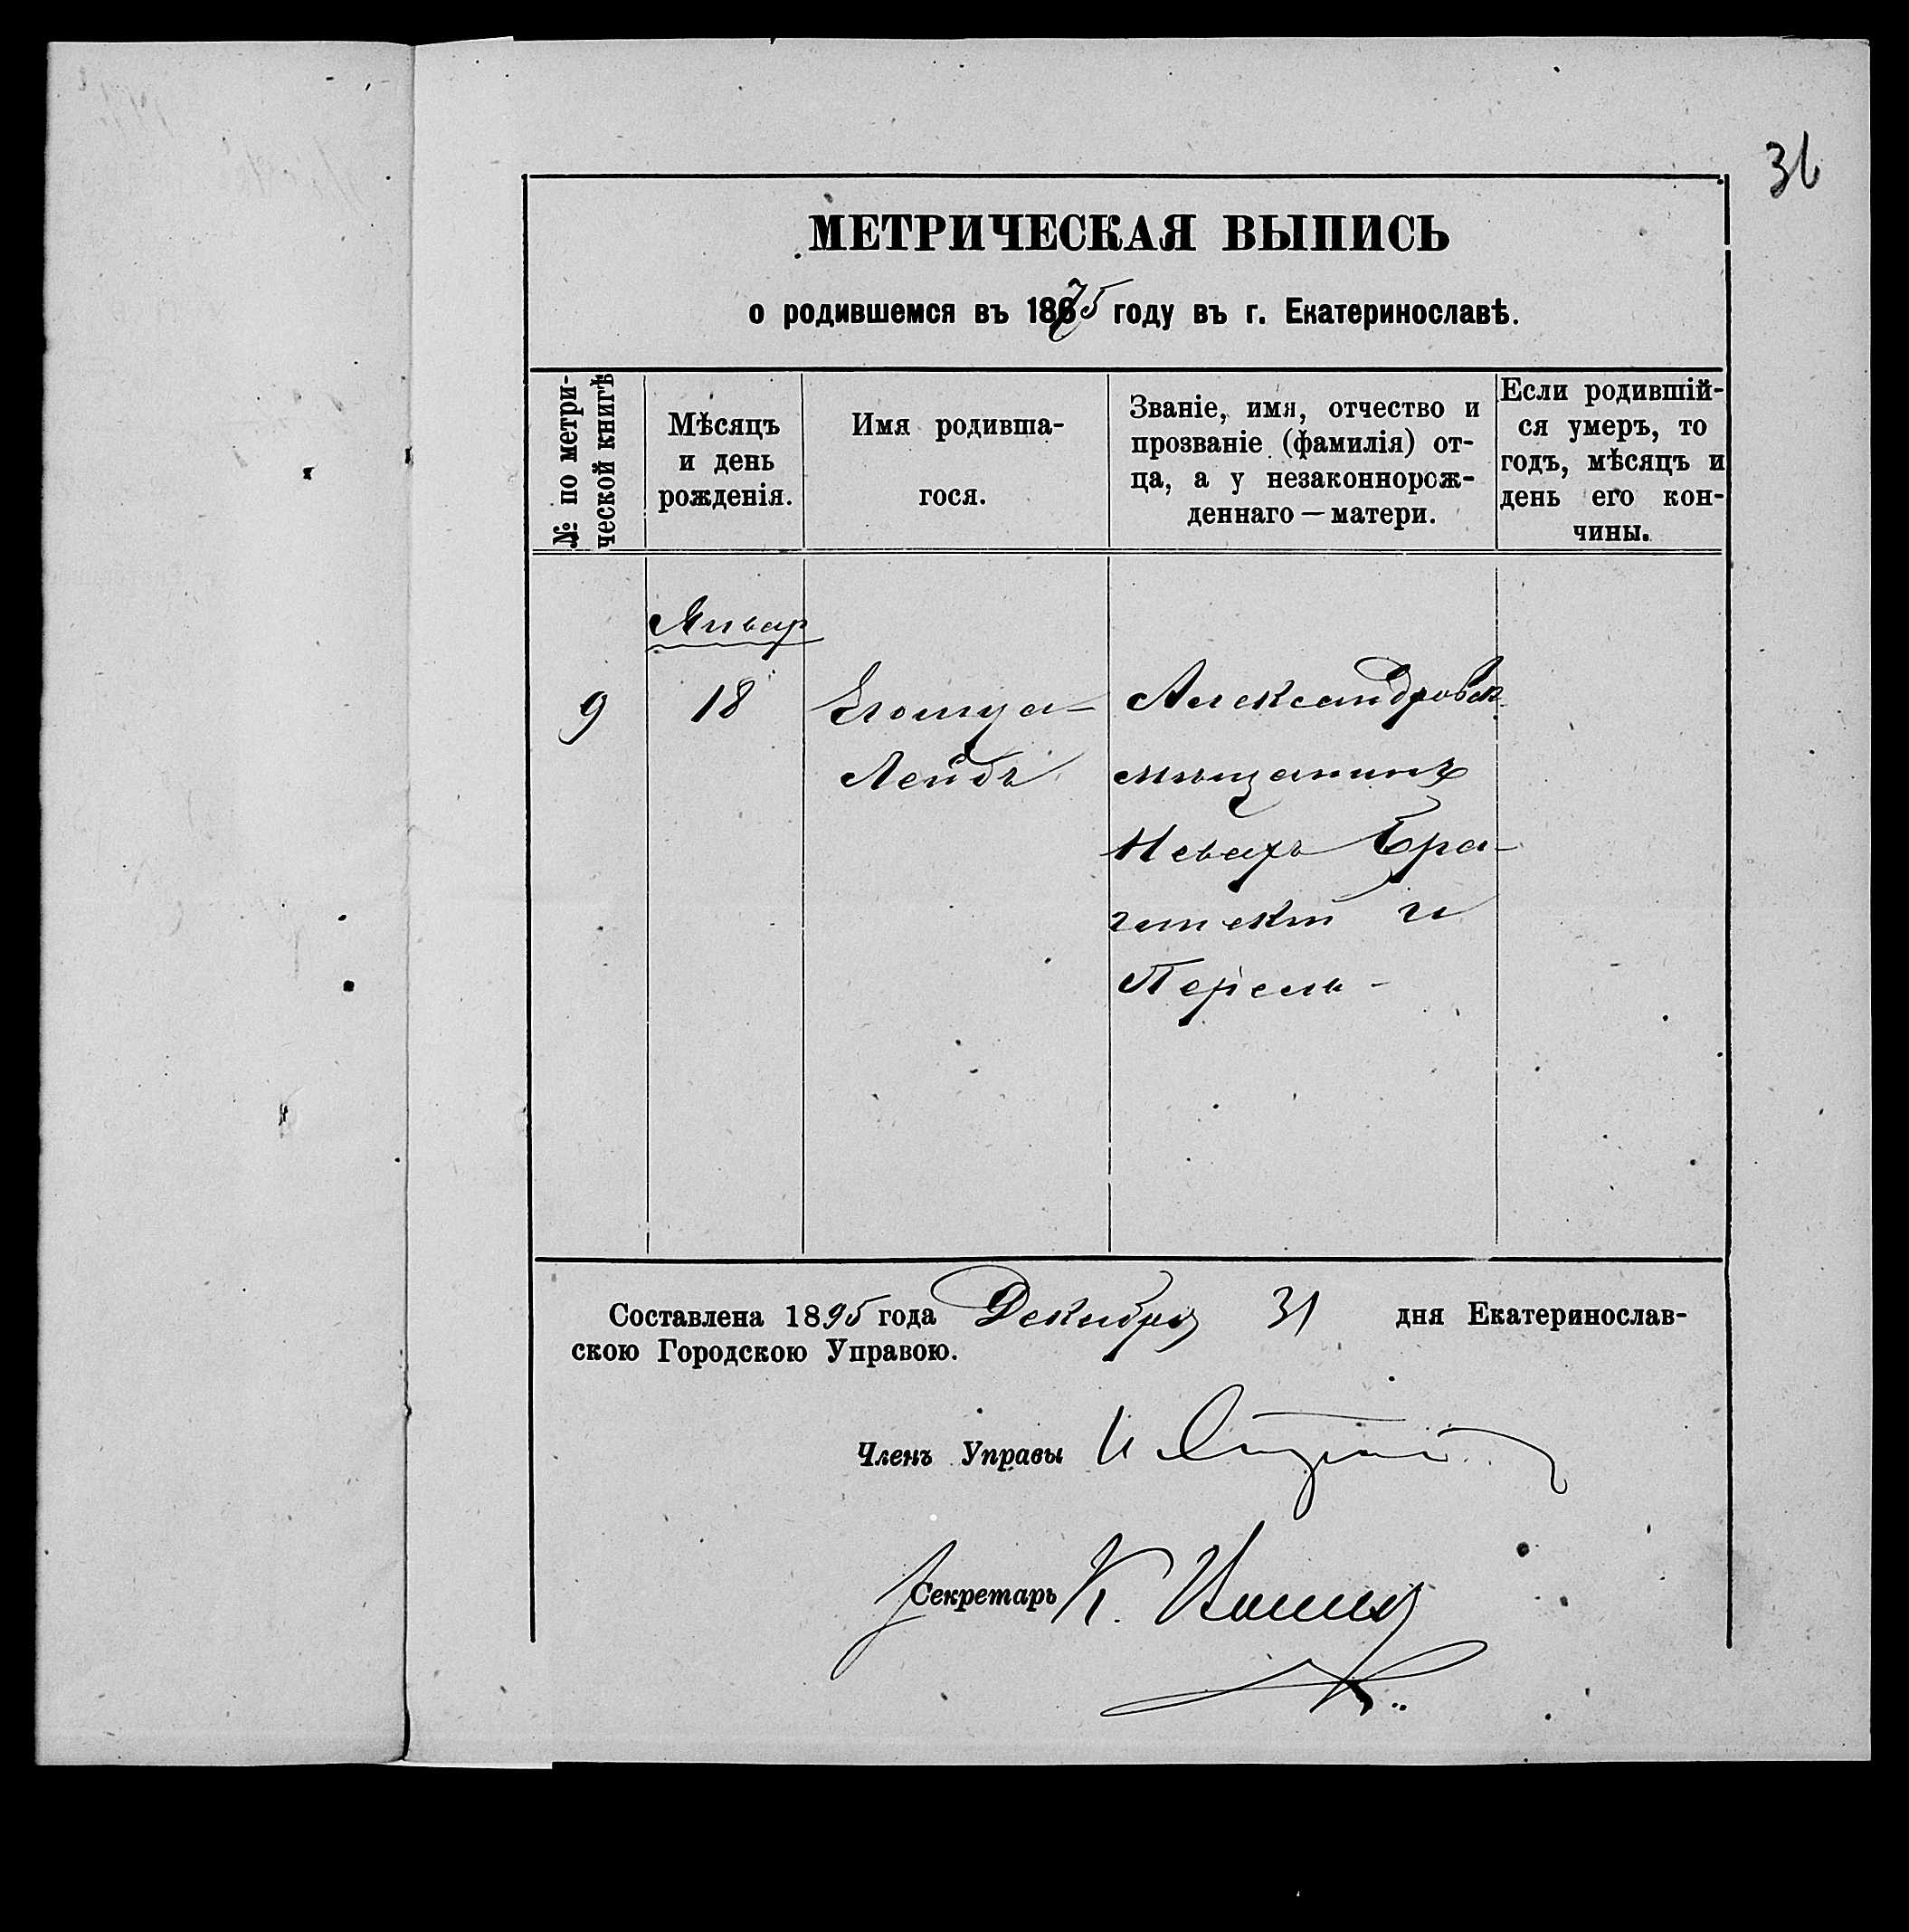 36
МЕТРИЧЕСКАЯ ВЫПИСЬ
о родившемся въ 1875 году въ г. Екатеринославѣ.
№ по метри-
ческой книгѣ
Мѣсяцъ
и день
рожденія.
Имя родивша-
гося.
Званіе, имя, отчество и
прозваніе (фамилія) от-
ца, а у незаконнорож-
деннаго — матери.
Если родившій-
ся умеръ, то
годъ, мѣсяцъ и
день его кон-
чины.
Январ
9
18
Егошуа-
Лейбъ
Александровск
мѣщанинъ
Невахъ Бра-
гинскій и
Перель-
Составлена 1895 года Декабря 31 дня Екатеринослав-
скою Городскою Управою.
Членъ Управы И
Секретарь К.